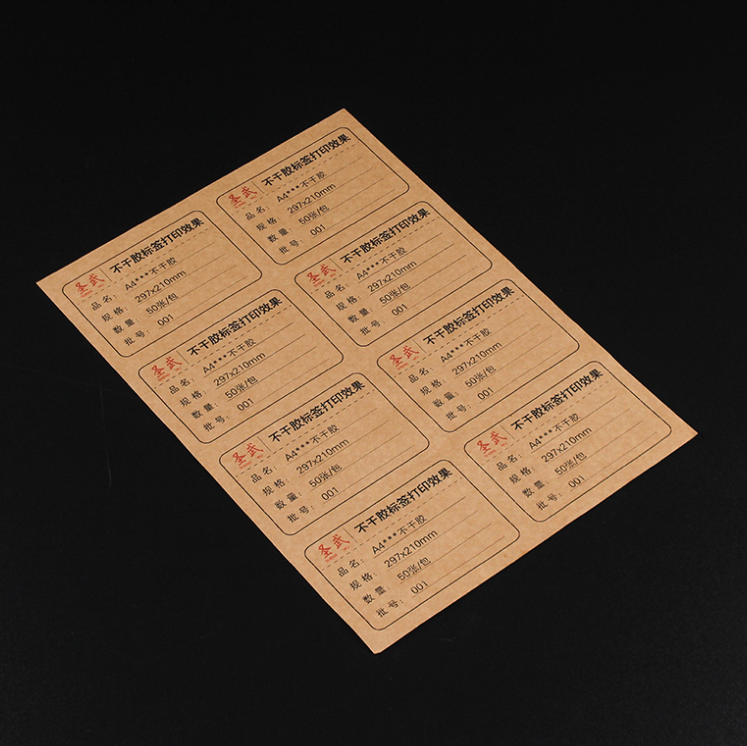 圣武 不干胶标签打印效果
品名： A4***不干胶
规格： 297x210mm
数量： 50张/包
批号： 001
圣武 不干胶标签打印效果
品名： A4***不干胶
规格： 297x210mm
数量： 50张/包
批号： 001
圣武 不干胶标签打印效果
品名： A4***不干胶
规格： 297x210mm
数量： 50张/包
批号： 001
圣武 不干胶标签打印效果
品名： A4***不干胶
规格： 297x210mm
数量： 50张/包
批号： 001
圣武 不干胶标签打印效果
品名： A4***不干胶
规格： 297x210mm
数量： 50张/包
批号： 001
圣武 不干胶标签打印效果
品名： A4***不干胶
规格： 297x210mm
数量： 50张/包
批号： 001
圣武 不干胶标签打印效果
品名： A4***不干胶
规格： 297x210mm
数量： 50张/包
批号： 001
圣武 不干胶标签打印效果
品名： A4***不干胶
规格： 297x210mm
数量： 50张/包
批号： 001